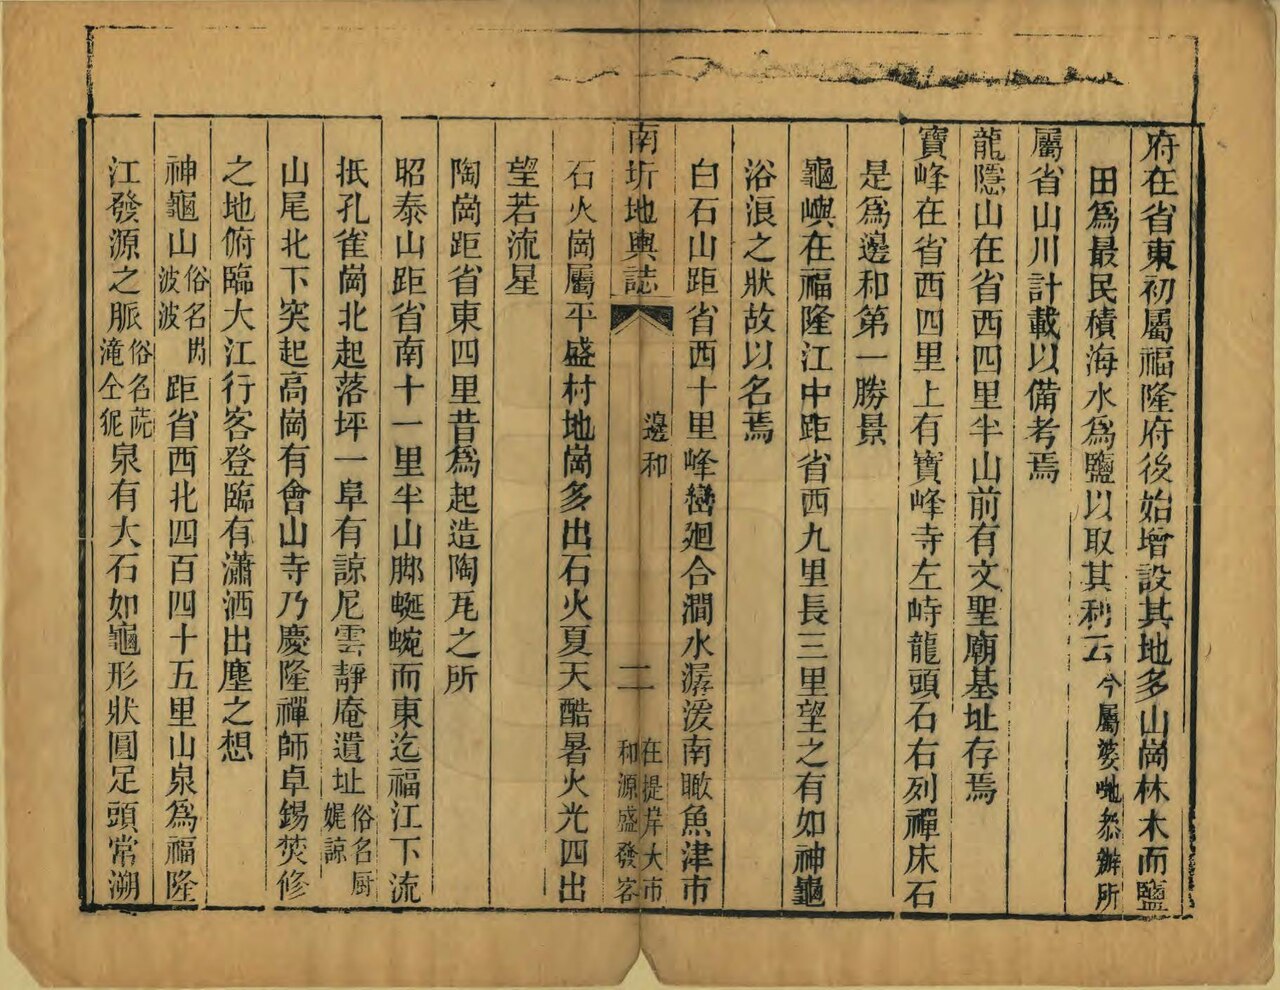 府在省東初屬福隆府後始增設其地多山崗林木而鹽
田為最民積海水為鹽以取其利云今屬婆地㕘辦所
屬省山川計載以備考焉
龍隱山在省西四里半山前有文聖廟基址存焉
寶峰在省西四里上有寶峰寺左峙龍頭石右列禪床石
是為邊和第一勝景
龜嶼在福隆江中距省西九里長三里望之有如神龜
浴浪之狀故以名焉
白石山距省西十里峰巒廻合澗水潺湲南瞰魚津市
南圻地輿誌 邊和 二 在提岸大市和源盛發客
石火崗屬平盛村地崗多出石火夏天酷暑火光四出
望若流星
陶崗距省東四里昔為起造陶瓦之所
昭泰山距省南十一里半山脚蜒蜿而東迄福江下流
抵孔雀崗北起落坪一阜有諒尼雲靜庵遺址俗名厨娓諒
山尾北下突起高崗有會山寺乃慶隆禪師卓錫焚修
之地俯臨大江行客登臨有瀟洒出塵之想
神龜山俗名波波距省西北四百四十五里山泉為福隆
江發源之脈俗名滝仝狔泉有大石如龜形狀圓足頭常溯